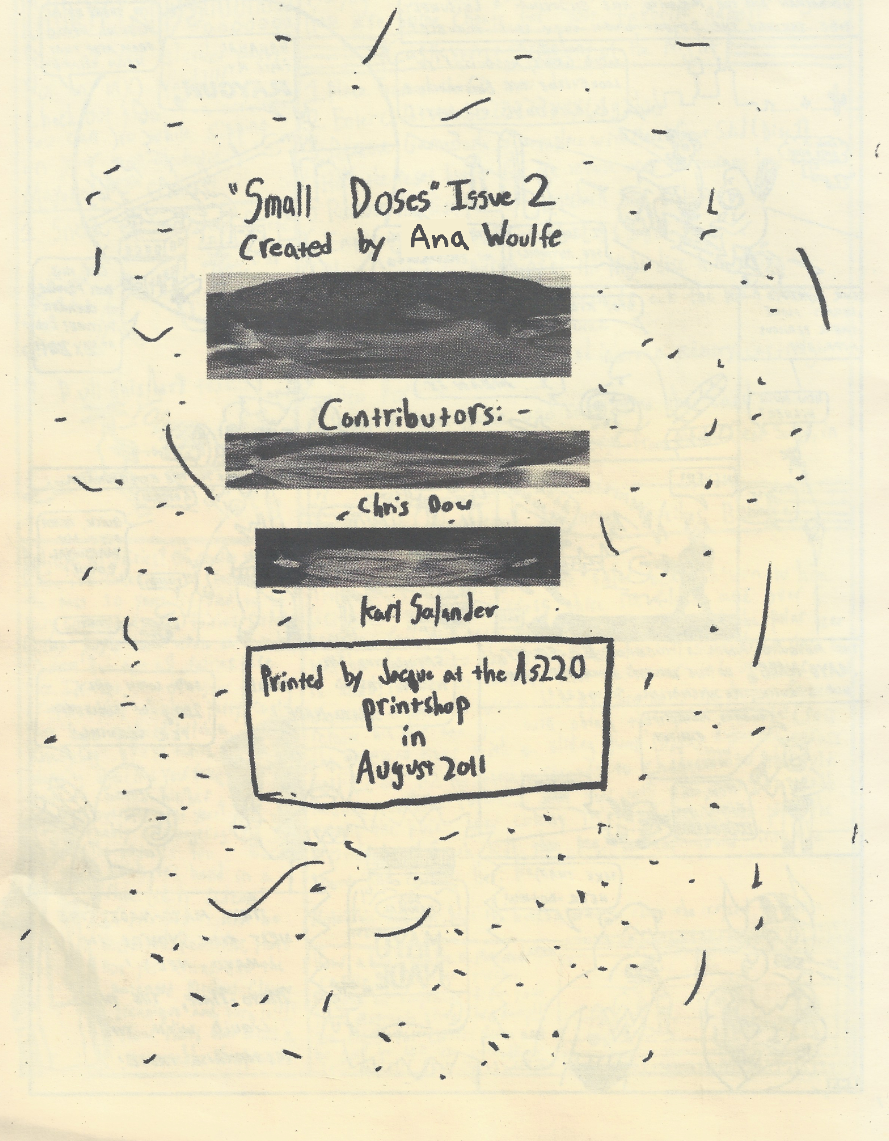 "Small Doses" Issue 2
Created by Ana Woulfe
Contributors: -
Chris Dow
Karl Salander
Printed by Jacque at the As220
printshop
in
August 2011